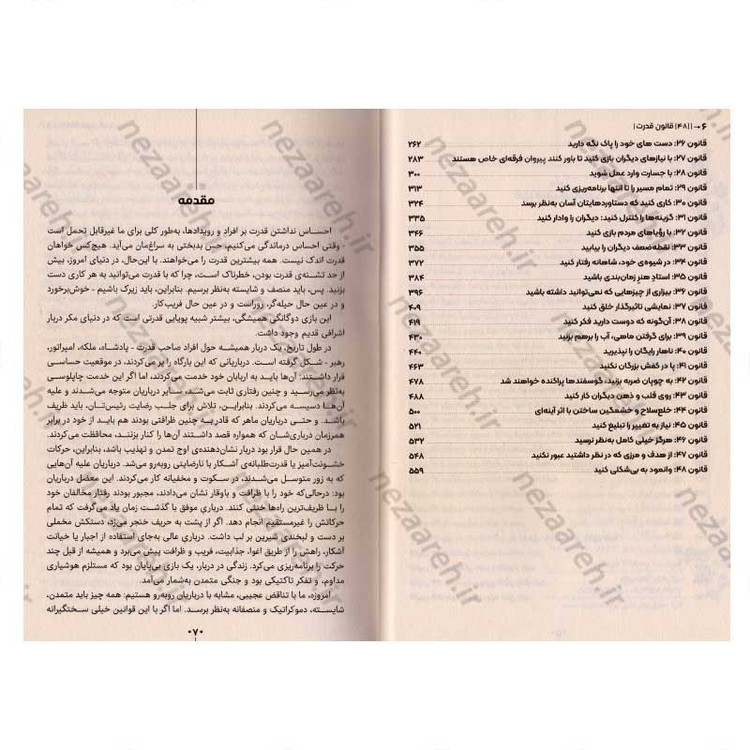 ۶ → | [۴۸] قانون قدرت |
قانون ۲۶: دست های خود را پاک نگه دارید ۲۶۲
قانون ۲۷: با نیازهای دیگران بازی کنید تا باور کنند پیروان فرقه‌ای خاص هستند ۲۸۳
قانون ۲۸: با جسارت وارد عمل شوید ۳۰۰
قانون ۲۹: تمام مسیر را تا انتها برنامه‌ریزی کنید ۳۱۳
قانون ۳۰: کاری کنید که دستاوردهایتان آسان به‌نظر برسد ۳۲۴
قانون ۳۱: گزینه‌ها را کنترل کنید: دیگران را وادار کنید ۳۳۵
قانون ۳۲: با رؤیاهای مردم بازی کنید ۳۴۶
قانون ۳۳: نقطه‌ضعف دیگران را بیابید ۳۵۵
قانون ۳۴: در شیوه‌ی خود، شاهانه رفتار کنید ۳۷۲
قانون ۳۵: استاد هنر زمان‌بندی باشید ۳۸۴
قانون ۳۶: بیزاری از چیزهایی که نمی‌توانید داشته باشید ۳۹۶
قانون ۳۷: نمایشی تاثیرگذار خلق کنید ۴۰۹
قانون ۳۸: آن‌گونه که دوست دارید فکر کنید ۴۱۹
قانون ۳۹: برای گرفتن ماهی، آب را برهم بزنید ۴۳۰
قانون ۴۰: ناهار رایگان را نپذیرید ۴۴۰
قانون ۴۱: پا در کفش بزرگان نکنید ۴۶۳
قانون ۴۲: به چوپان ضربه بزنید، گوسفندها پراکنده خواهند شد ۴۷۸
قانون ۴۳: روی قلب و ذهن دیگران کار کنید ۴۸۸
قانون ۴۴: خلع‌سلاح و خشمگین ساختن با اثر آینه‌ای ۵۰۰
قانون ۴۵: نیاز به تغییر را تبلیغ کنید ۵۲۱
قانون ۴۶: هرگز خیلی کامل به‌نظر نرسید ۵۳۲
قانون ۴۷: از هدف و مرزی که در نظر داشتید عبور نکنید ۵۴۸
قانون ۴۸: وانمود به بی‌شکلی کنید ۵۵۹
مقدمه
احساس نداشتن قدرت بر افراد و رویدادها، به‌طور کلی برای ما غیرقابل تحمل است
- وقتی احساس درماندگی می‌کنیم، حس بدبختی به سراغ‌مان می‌آید. هیچ‌کس خواهان
قدرت اندک نیست. همه بیشترین قدرت را می‌خواهند. با این‌حال، در دنیای امروز، بیش
از حد تشنه‌ی قدرت بودن، خطرناک است، چرا که با قدرت می‌توانید به هر کاری دست
بزنید. پس، باید منصف و شایسته به‌نظر برسیم. بنابراین، باید زیرک باشیم - خوش‌برخورد
و در عین حال حیله‌گر، روراست و در عین حال فریب‌کار.
این بازی دوگانگی همیشگی، بیشتر شبیه پویایی قدرتی است که در دنیای مکر دربار
اشرافی قدیم وجود داشت.
در طول تاریخ، یک دربار همیشه حول افراد صاحب قدرت - پادشاه، ملکه، امپراتور،
رهبر - شکل گرفته است. درباریانی که این بارگاه را پر می‌کردند، در موقعیت حساسی
قرار داشتند: آن‌ها باید به اربابان خود خدمت می‌کردند، اما اگر این خدمت چاپلوسی
به‌نظر می‌رسید و چنین رفتاری ثابت می‌شد، سایر درباریان متوجه می‌شدند و علیه
آن‌ها دسیسه می‌کردند. بنابراین، تلاش برای جلب رضایت رئیس‌تان، باید ظریف
باشد. و حتی درباریان ماهر که قادر به چنین ظرافتی بودند، هم باید در برابر
همرزمان درباری‌شان که همواره قصد داشتند آن‌ها را کنار بزنند، محافظت می‌کردند.
در همین حال قرار بود دربار نشان‌دهنده‌ی اوج تمدن و تهذیب باشد، بنابراین، حرکات
خشونت‌آمیز یا قدرت‌طلبانه‌ی آشکار با نارضایتی روبه‌رو می‌شد. درباریان علیه آن‌هایی
که به زور متوسل می‌شدند، در سکوت و مخفیانه کار می‌کردند. این معضل درباریان
بود: درحالی‌که خود را با ظرافت و باوقار نشان می‌دادند، مجبور بودند رفتار مخالفان خود
را با ظریف‌ترین راه‌ها خنثی کنند. درباری موفق با گذشت زمان یاد می‌گرفت تمام
حرکاتش را غیرمستقیم انجام دهد. اگر از پشت به حریف خنجر می‌زد، دستکش مخملی
بر دست و لبخندی شیرین بر لب داشت. درباری عالی به‌جای استفاده از اجبار یا خیانت
آشکار، راهش را از طریق اغوا، جذابیت، فریب و ظرافت پیش می‌برد و همیشه از قبل چند
حرکت را برنامه‌ریزی می‌کرد. زندگی در دربار، یک بازی بی‌پایان بود که مستلزم هوشیاری
مداوم، و تفکر تاکتیکی بود و جنگی متمدن به‌شمار می‌آمد.
امروزه، ما با تناقض عجیبی، مشابه با درباریان روبه‌رو هستیم: همه چیز باید متمدن،
شایسته، دموکراتیک و منصفانه به‌نظر برسد. اما اگر با این قوانین خیلی سختگیرانه
۰۷۰
nezaareh.ir